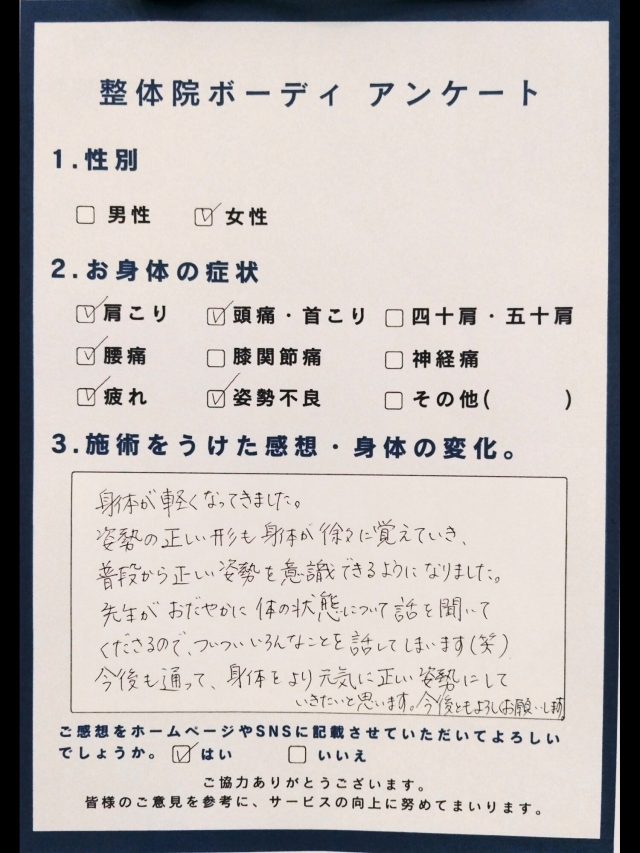 整体院ボーディ アンケート
1.性別
男性 女性
2.お身体の症状
肩こり 頭痛・首こり 四十肩・五十肩
腰痛 膝関節痛 神経痛
疲れ 姿勢不良 その他( )
3.施術をうけた感想・身体の変化。
身体が軽くなってきました。
姿勢の正しい形も身体が徐々に覚えていき、
普段から正しい姿勢を意識できるようになりました。
先生がおだやかに体の状態について話を聞いて
くださるので、ついついいろんなことを話してしまいます(笑)
今後も通って、身体をより元気に正しい姿勢にして
いきたいと思います。今後ともよろしくお願いします
ご感想をホームページやSNSに記載させていただいてよろしい
でしょうか。 はい いいえ
ご協力ありがとうございます。
皆様のご意見を参考に、サービスの向上に努めてまいります。